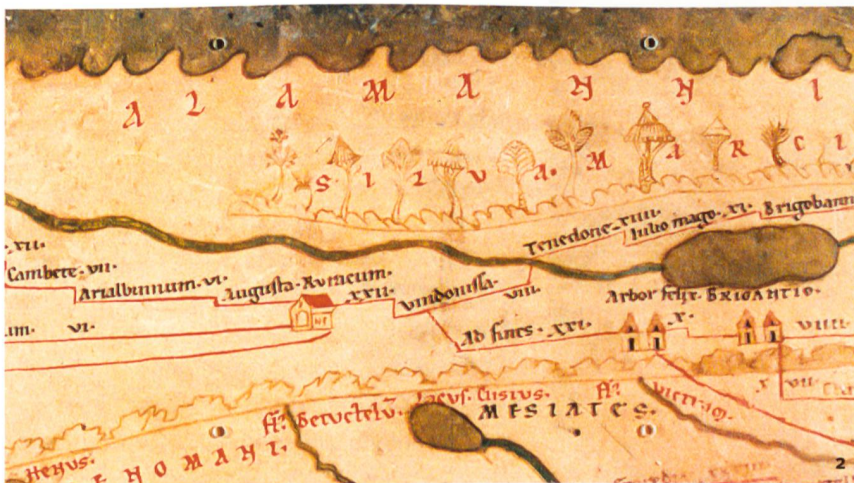 ALAMANNI
SILVA. MARCI
Tenedone·XIIII· Iulio mago·XI· Brigobann
·XII·
Cambete·VII· Arialbinnum·VI· Augusta·Ruracum· XXII· Vindonissa· VIII·
Arbor felix· BRIGANTIO·
um· VI· Ad fines·XXI· X· VIIII
X VII
fl. Lacus· Clisius· fl.
MESIATES·
ENOMANI·
2